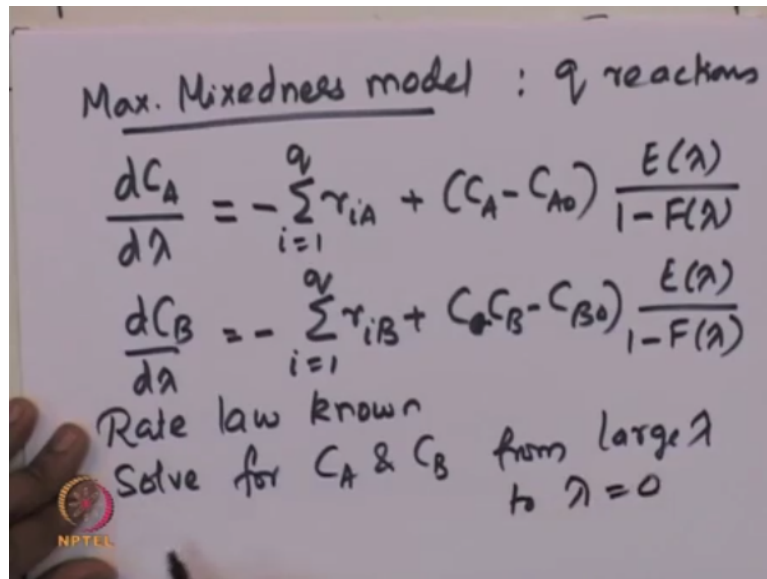 Max. Mixedness model : q reactions
dC_A/dλ = - Σ_{i=1}^{q} r_{iA} + (C_A - C_{A0}) E(λ)/(1 - F(λ))
dC_B/dλ = - Σ_{i=1}^{q} r_{iB} + (C_B - C_{B0}) E(λ)/(1 - F(λ))
Rate law known
Solve for C_A & C_B from large λ
to λ = 0
NPTEL